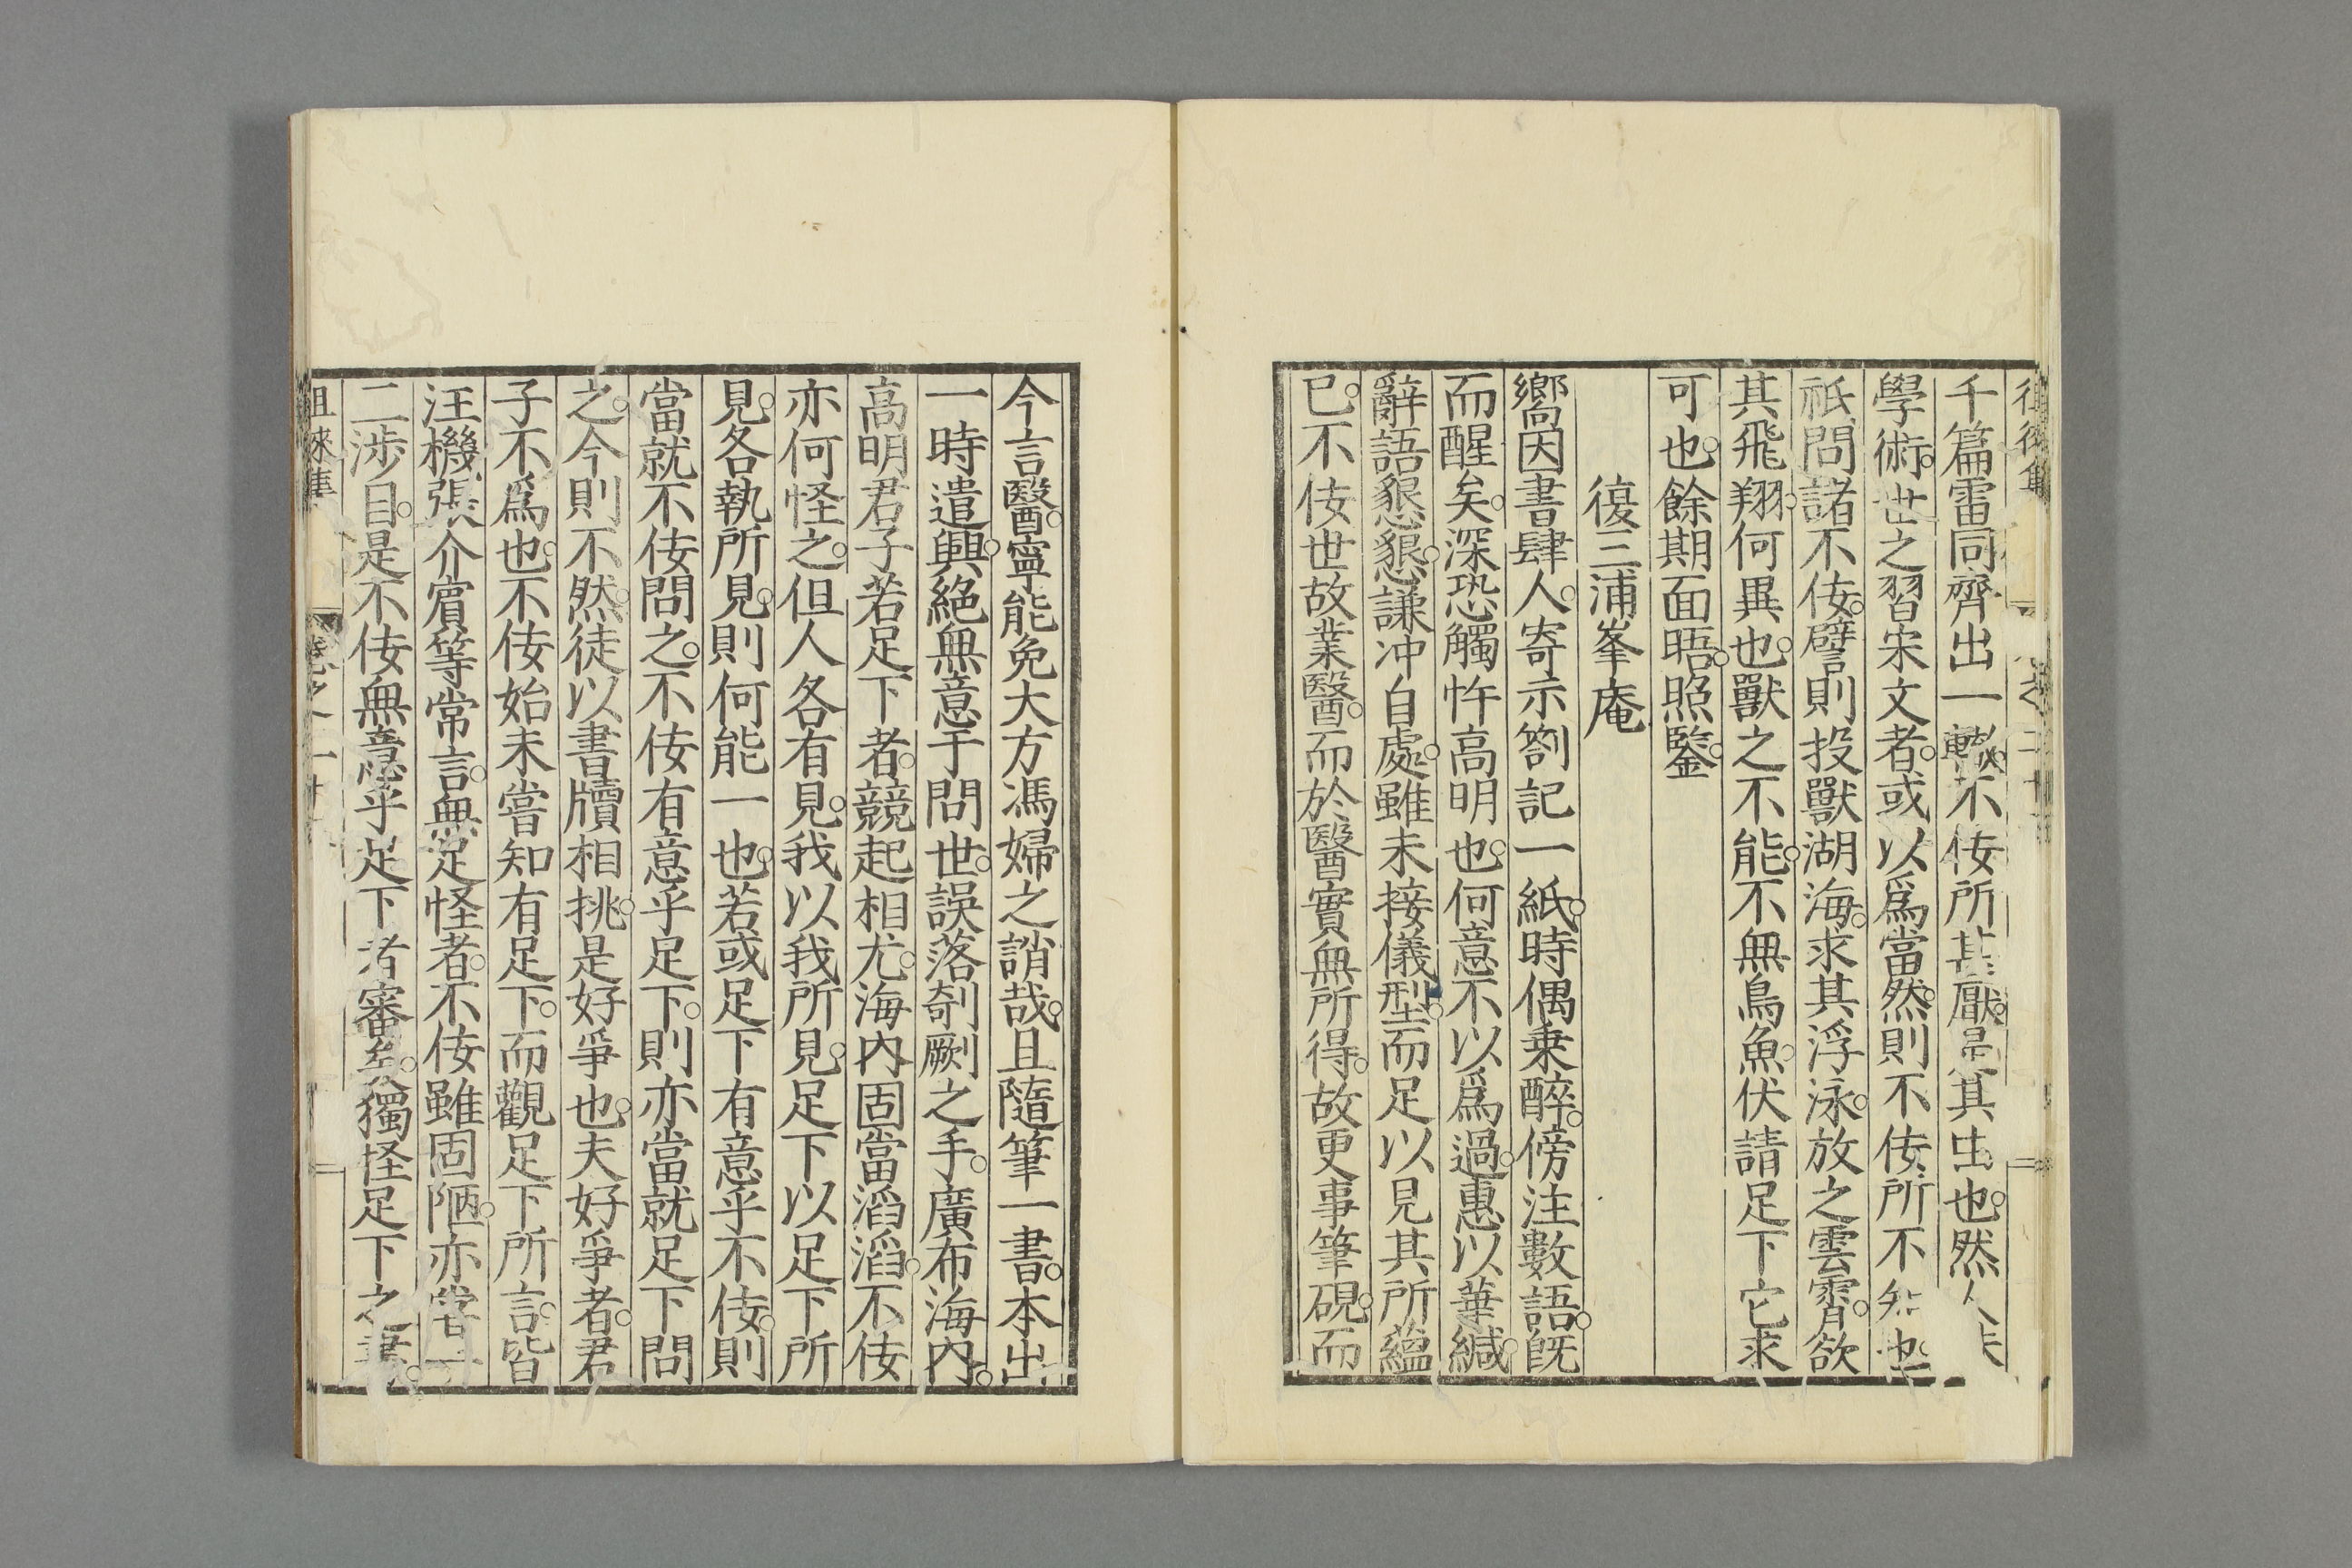 千篇雷同齊出一轍。不佞所甚厭。其也。然
學術。世之習宋文者。或以爲當然。則不佞所不也。
祇問諸不佞。譬則投獸湖海。求其浮泳。放之雲霄。欲
其飛翔。何異也。獸之不能。不無鳥魚。伏請足下它求
可也。餘期面晤。照鑒。
復三浦峯庵
嚮因書肆人。寄示劄記一紙。時偶乗醉。傍注數語。旣
而醒矣。深恐觸忤高明也。何意不以爲過。惠以華緘。
辭語懇懇。謙冲自處。雖未接儀型。而足以見其所蘊
已。不佞世故業醫。而於醫實無所得。故更事筆硯。而
今言醫。寧能免大方馮婦之誚哉。且隨筆一書。本出
一時遣興。絕無意于問世。誤落剞劂之手。廣布海內。
高明君子若足下者。競起相尤。海內固當滔滔。不佞
亦何怪之。但人各有見。我以我所見。足下以足下所
見。各執所見。則何能一也。若或足下有意乎不佞。則
當就不佞問之。不佞有意乎足下。則亦當就足下問
之。今則不然。徒以書牘相挑。是好爭也。夫好爭者。君
子不爲也。不佞始未嘗知有足下。而觀足下所言。皆
汪機張介賓等常言。無足怪者。不佞雖固陋。亦嘗一
二涉目。是不佞無意乎足下者審矣。獨怪足下之書。
徂徠集 卷之二十